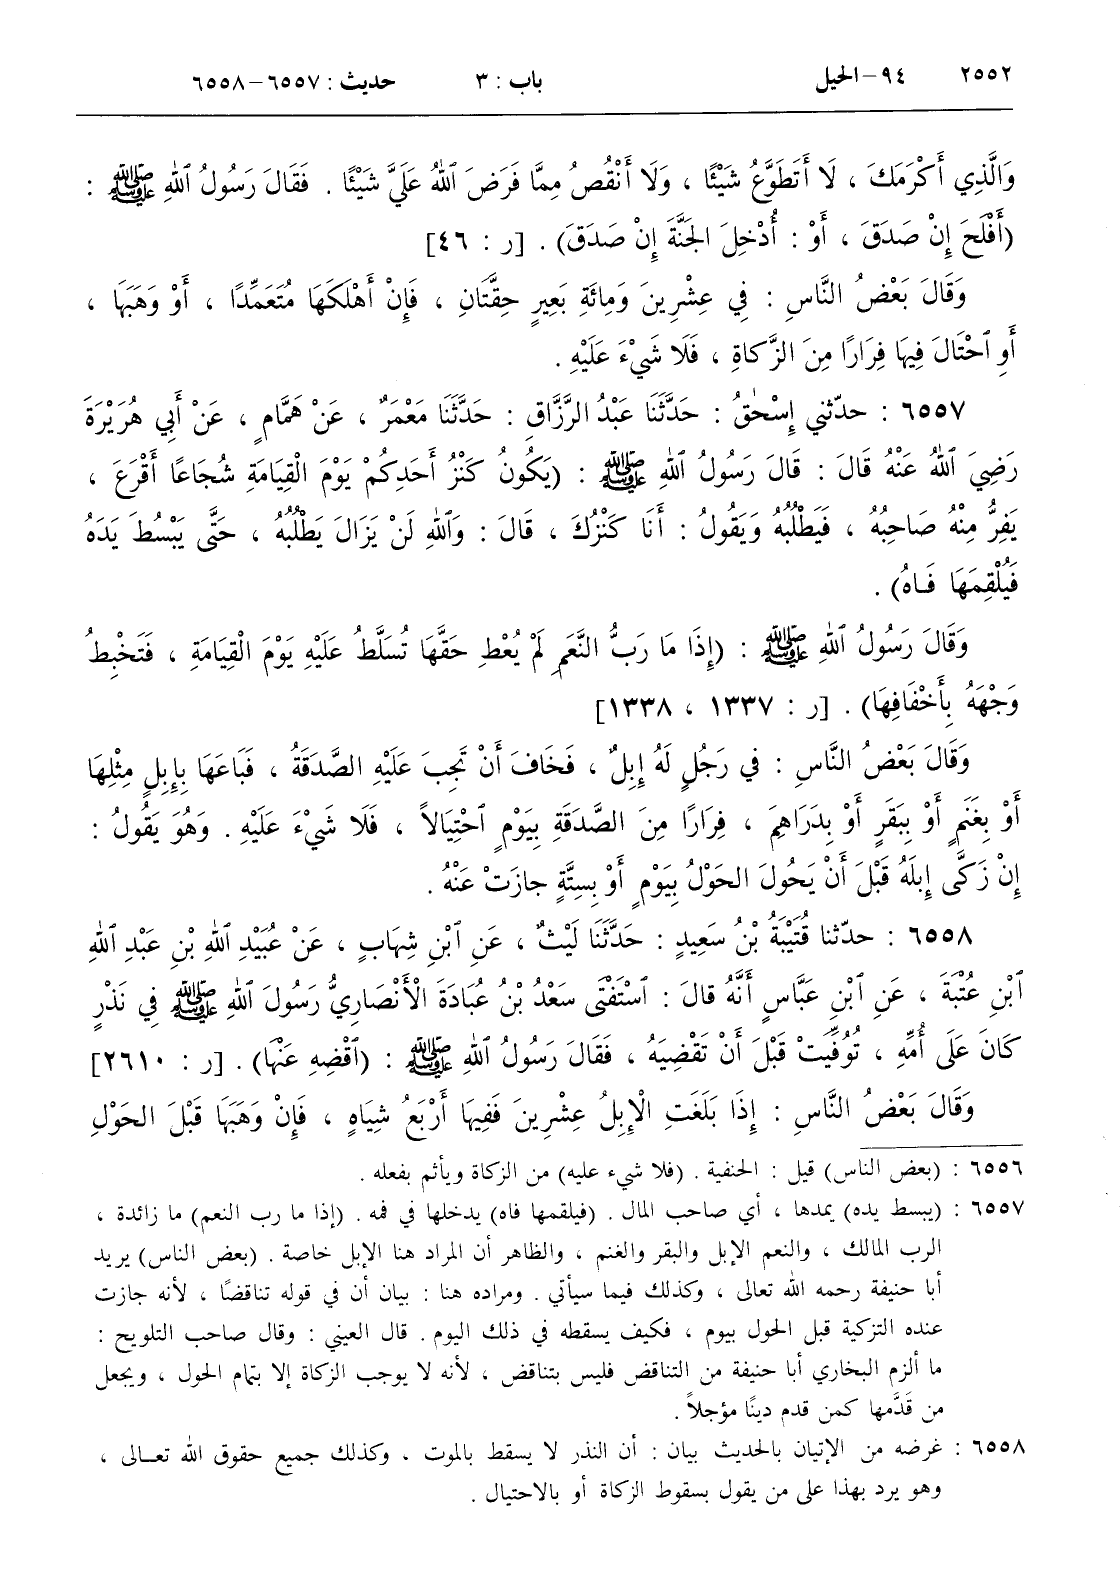 ٢٥٥٢ ٩٤-الحيل باب : ٣ حديث : ٦٥٥٧-٦٥٥٨
وَالَّذِي أَكْرَمَكَ ، لَا أَتَطَوَّعُ شَيْئًا ، وَلَا أَنْقُصُ مِمَّا فَرَضَ ٱللهُ عَلَيَّ شَيْئًا . فَقَالَ رَسُولُ ٱللهِ ﷺ :
(أَفْلَحَ إِنْ صَدَقَ ، أَوْ : أُدْخِلَ الجَنَّةَ إِنْ صَدَقَ) . [ر : ٤٦]
وَقَالَ بَعْضُ النَّاسِ : فِي عِشْرِينَ وَمِائَةِ بَعِيرٍ حِقَّتَانِ ، فَإِنْ أَهْلَكَهَا مُتَعَمِّدًا ، أَوْ وَهَبَهَا ،
أَوِ ٱحْتَالَ فِيهَا فِرَارًا مِنَ الزَّكاةِ ، فَلَا شَيْءَ عَلَيْهِ .
٦٥٥٧ : حدّثني إِسْحٰقُ : حَدَّثَنَا عَبْدُ الرَّزَّاقِ : حَدَّثَنَا مَعْمَرٌ ، عَنْ هَمَّامٍ ، عَنْ أَبِي هُرَيْرَةَ
رَضِيَ ٱللهُ عَنْهُ قَالَ : قَالَ رَسُولُ ٱللهِ ﷺ : (يَكُونُ كَنْزُ أَحَدِكُمْ يَوْمَ الْقِيَامَةِ شُجَاعًا أَقْرَعَ ،
يَفِرُّ مِنْهُ صَاحِبُهُ ، فَيَطْلُبُهُ وَيَقُولُ : أَنَا كَنْزُكَ ، قَالَ : وَٱللهِ لَنْ يَزَالَ يَطْلُبُهُ ، حَتَّى يَبْسُطَ يَدَهُ
فَيُلْقِمَهَا فَاهُ) .
وَقَالَ رَسُولُ ٱللهِ ﷺ : (إِذَا مَا رَبُّ النَّعَمِ لَمْ يُعْطِ حَقَّهَا تُسَلَّطُ عَلَيْهِ يَوْمَ الْقِيَامَةِ ، فَتَخْبِطُ
وَجْهَهُ بِأَخْفَافِهَا) . [ر : ١٣٣٧ ، ١٣٣٨]
وَقَالَ بَعْضُ النَّاسِ : في رَجُلٍ لَهُ إِبِلٌ ، فَخَافَ أَنْ تَجِبَ عَلَيْهِ الصَّدَقَةُ ، فَبَاعَهَا بِإِبِلٍ مِثْلِهَا
أَوْ بِغَنَمٍ أَوْ بِبَقَرٍ أَوْ بِدَرَاهِمَ ، فِرَارًا مِنَ الصَّدَقَةِ بِيَوْمٍ ٱحْتِيَالاً ، فَلَا شَيْءَ عَلَيْهِ . وَهُوَ يَقُولُ :
إِنْ زَكَّى إِبِلَهُ قَبْلَ أَنْ يَحُولَ الحَوْلُ بِيَوْمٍ أَوْ بِسِتَّةٍ جازَتْ عَنْهُ .
٦٥٥٨ : حدّثنا قُتَيْبَةُ بْنُ سَعِيدٍ : حَدَّثَنَا لَيْثٌ ، عَنِ ٱبْنِ شِهَابٍ ، عَنْ عُبَيْدِ ٱللهِ بْنِ عَبْدِ ٱللهِ
ٱبْنِ عُتْبَةَ ، عَنِ ٱبْنِ عَبَّاسٍ أَنَّهُ قالَ : ٱسْتَفْتَى سَعْدُ بْنُ عُبَادَةَ الْأَنْصَارِيُّ رَسُولَ ٱللهِ ﷺ فِي نَذْرٍ
كَانَ عَلَى أُمِّهِ ، تُوُفِّيَتْ قَبْلَ أَنْ تَقْضِيَهُ ، فَقَالَ رَسُولُ ٱللهِ ﷺ : (ٱقْضِهِ عَنْهَا) . [ر : ٢٦١٠]
وَقَالَ بَعْضُ النَّاسِ : إِذَا بَلَغَتِ الْإِبِلُ عِشْرِينَ فَفِيهَا أَرْبَعُ شِيَاهٍ ، فَإِنْ وَهَبَهَا قَبْلَ الحَوْلِ
٦٥٥٦ : (بعض الناس) قيل : الحنفية . (فلا شيء عليه) من الزكاة ويأثم بفعله .
٦٥٥٧ : (يبسط يده) يمدها ، أي صاحب المال . (فيلقمها فاه) يدخلها في فمه . (إذا ما رب النعم) ما زائدة ،
الرب المالك ، والنعم الإبل والبقر والغنم ، والظاهر أن المراد هنا الإبل خاصة . (بعض الناس) يريد
أبا حنيفة رحمه الله تعالى ، وكذلك فيما سيأتي . ومراده هنا : بيان أن في قوله تناقضًا ، لأنه جازت
عنده التزكية قبل الحول بيوم ، فكيف يسقطه في ذلك اليوم . قال العيني : وقال صاحب التلويح :
ما ألزم البخاري أبا حنيفة من التناقض فليس بتناقض ، لأنه لا يوجب الزكاة إلا بتمام الحول ، ويجعل
من قَدَّمها كمن قدم دينًا مؤجلاً .
٦٥٥٨ : غرضه من الإتيان بالحديث بيان : أن النذر لا يسقط بالموت ، وكذلك جميع حقوق الله تعـالى ،
وهو يرد بهذا على من يقول بسقوط الزكاة أو بالاحتيال .